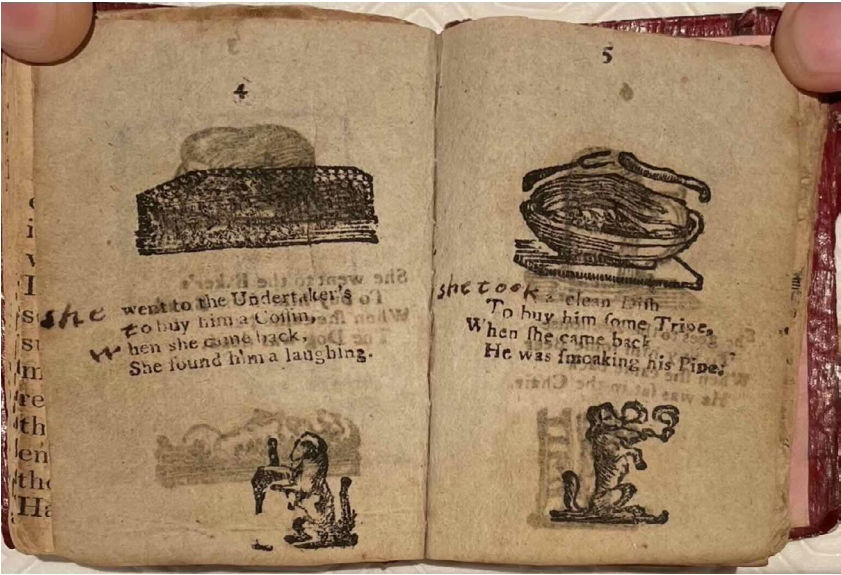 4
she went to the Undertaker's
to buy him a Coffin,
When she came back,
She found him a laughing.
5
she took a clean Dish
To buy him ſome Tripe,
When ſhe came back
He was ſmoaking his Pipe,